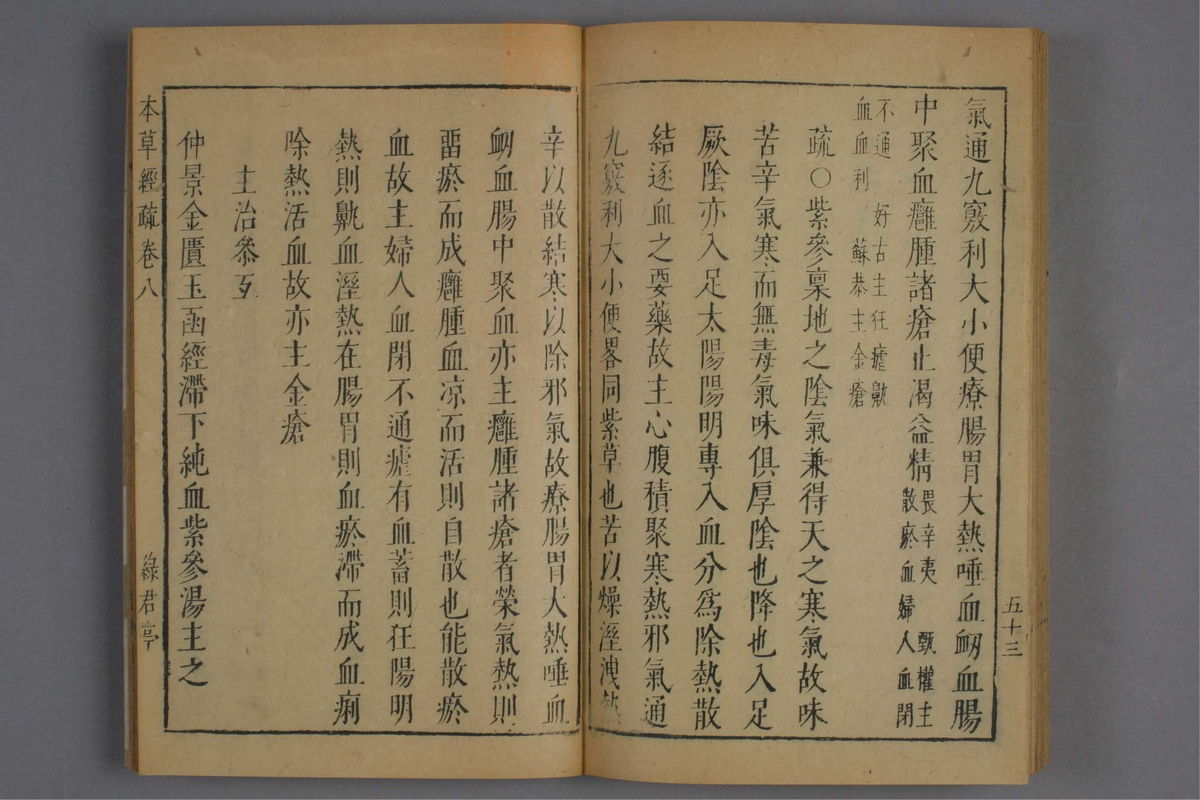 氣通九竅利大小便療腸胃大熱唾血衂血腸
中聚血癰腫諸瘡止渴益精畏辛夷 甄權主散瘀血婦人血閉
不通 好古主狂瘧鼽
血血利 蘇恭主金瘡
疏○紫參稟地之陰氣兼得天之寒氣故味
苦辛氣寒而無毒氣味俱厚陰也降也入足
厥陰亦入足太陽陽明專入血分爲除熱散
結逐血之要藥故主心腹積聚寒熱邪氣通
九竅利大小便畧同紫草也苦以燥溼洩熱
五十三
辛以散結寒以除邪氣故療腸胃大熱唾血
衂血腸中聚血亦主癰腫諸瘡者榮氣熱則
畱瘀而成癰腫血凉而活則自散也能散瘀
血故主婦人血閉不通瘧有血蓄則狂陽明
熱則鼽血溼熱在腸胃則血瘀滯而成血痢
除熱活血故亦主金瘡
主治參互
仲景金匱玉函經滯下純血紫參湯主之
本草經疏卷八
綠君亭